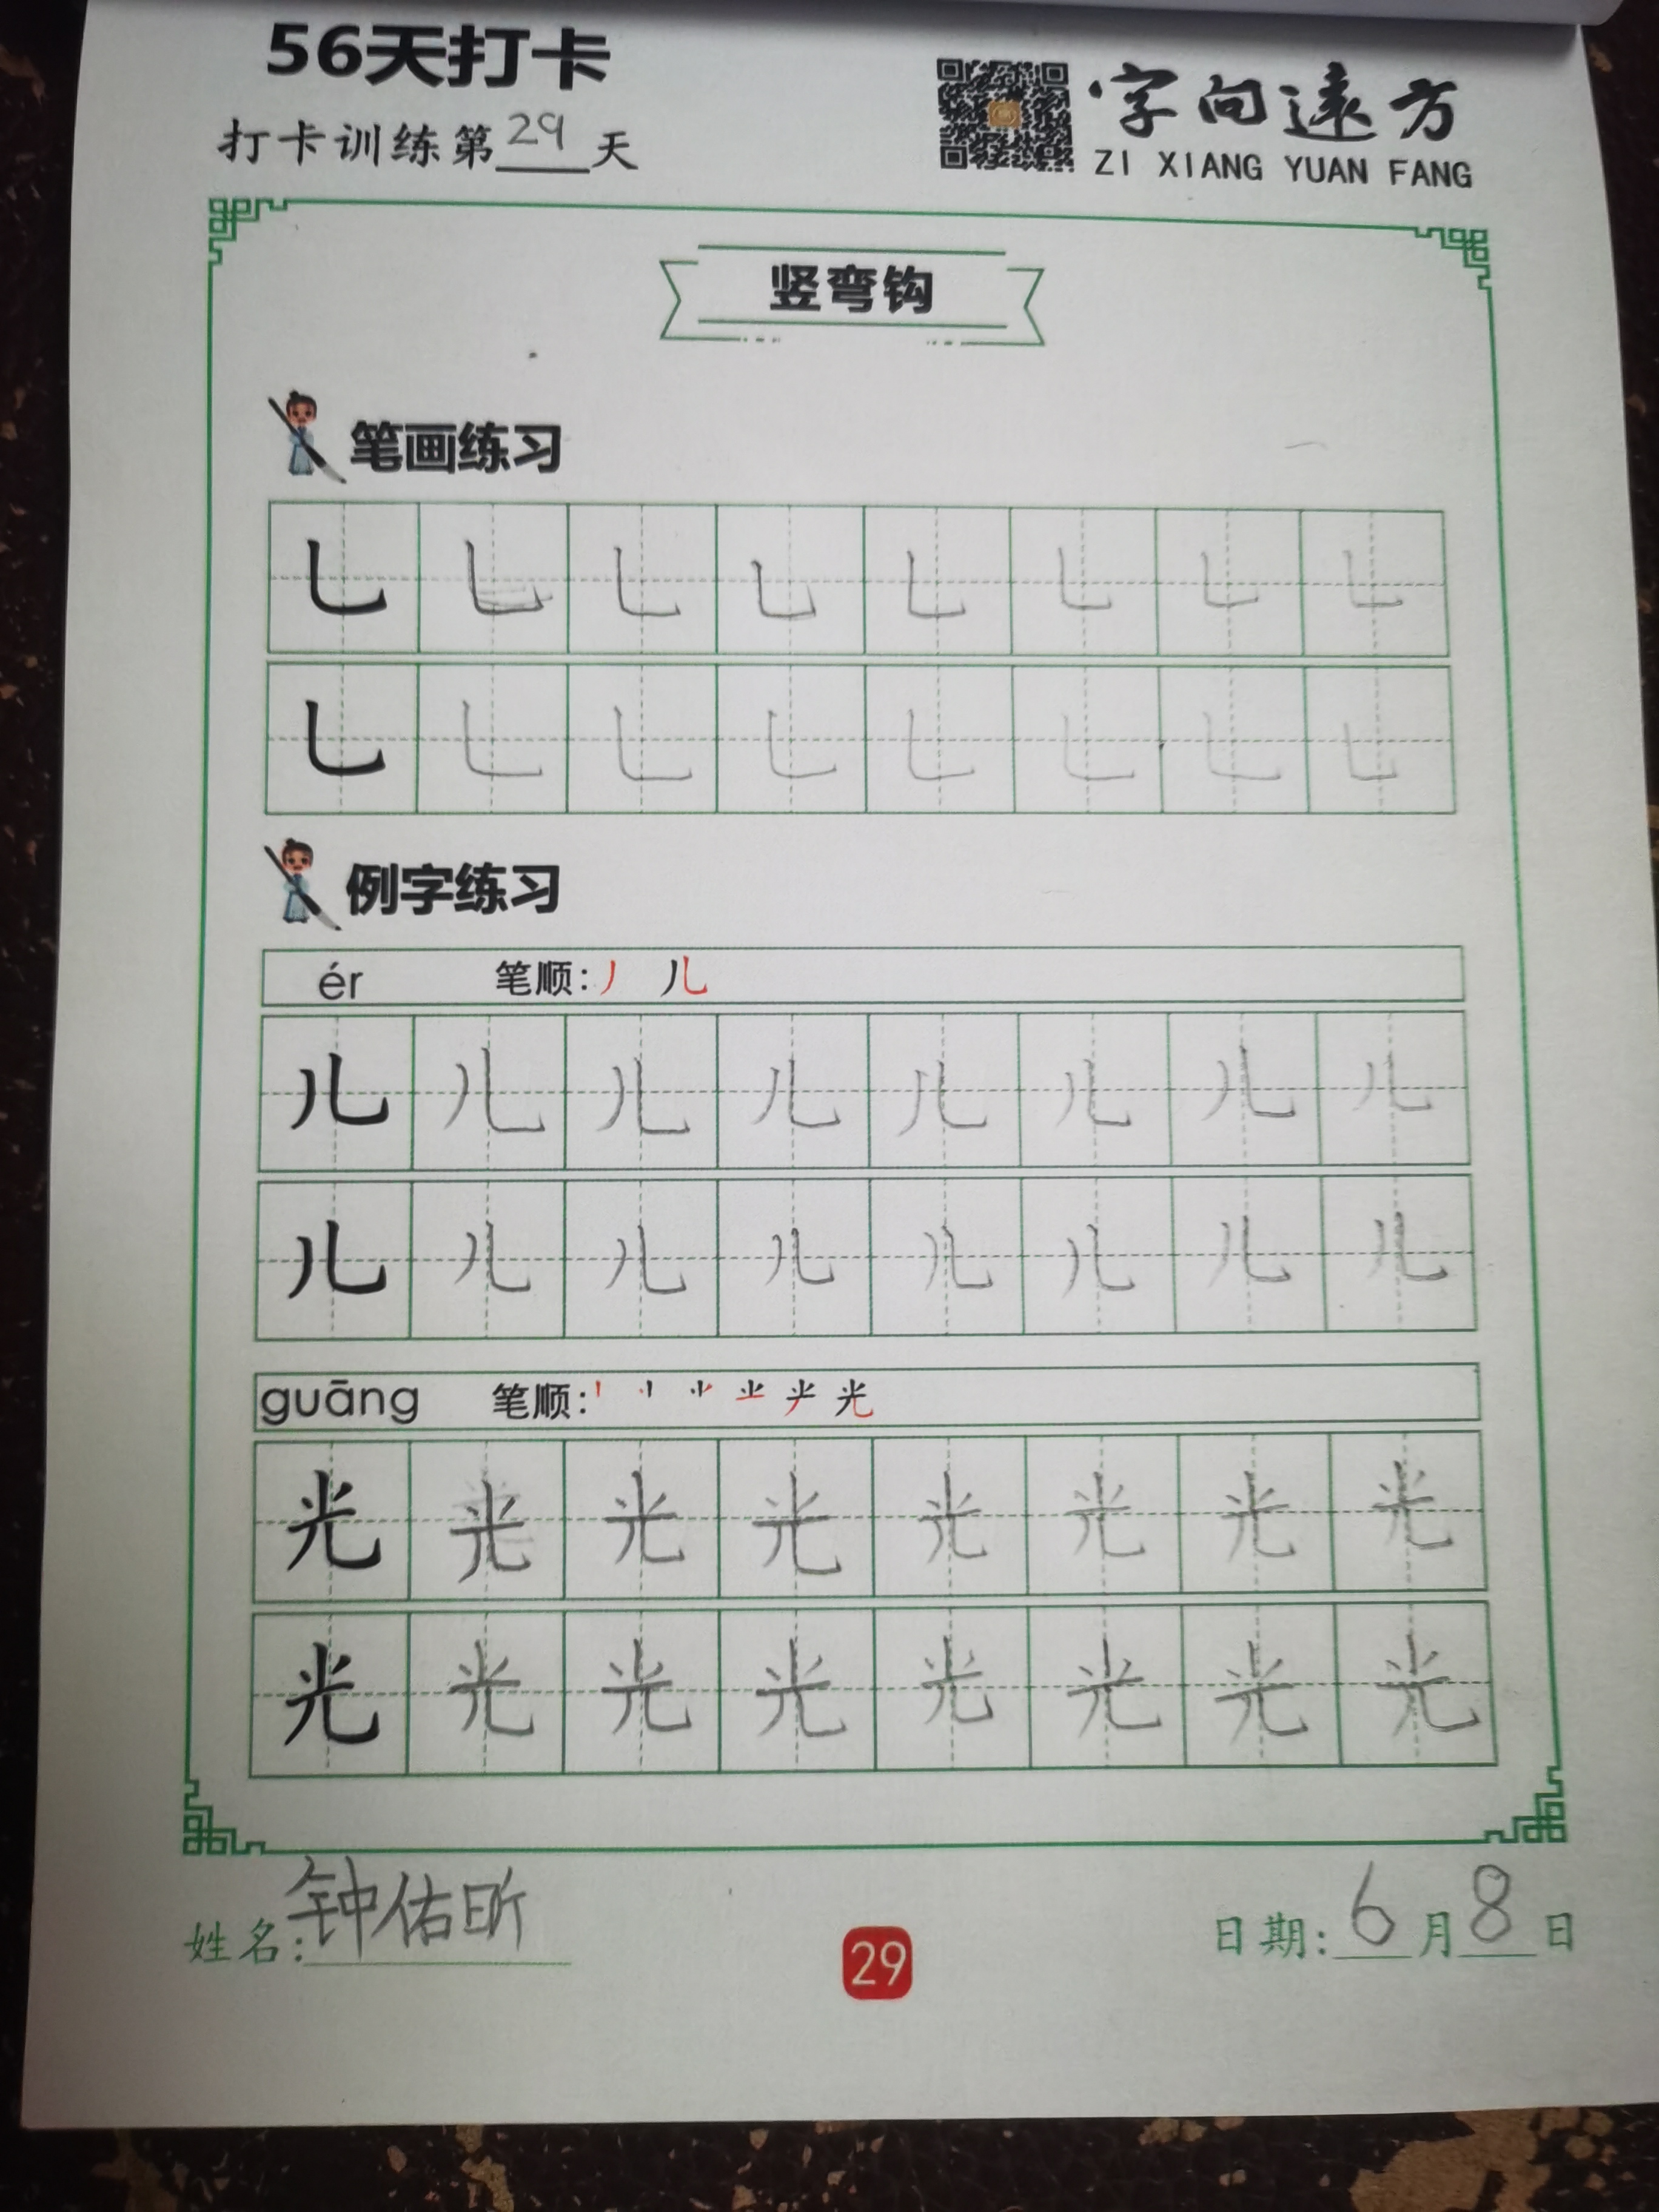 56天打卡
打卡训练第29天
字向远方
ZI XIANG YUAN FANG
竖弯钩
笔画练习
乚 乚 乚 乚 乚 乚 乚 乚
乚 乚 乚 乚 乚 乚 乚 乚
例字练习
ér 笔顺: 丿 儿
儿 儿 儿 儿 儿 儿 儿 儿
儿 儿 儿 儿 儿 儿 儿 儿
guāng 笔顺: 光
光 光 光 光 光 光 光 光
光 光 光 光 光 光 光 光
姓名: 钟佑昕
29
日期: 6月8日